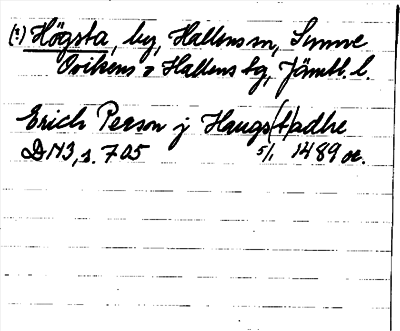 (?) Högsta, by, Hallens sn, Sunne
Ovikens o Hallens tg, Jämtl. l.
Erich Person j Haugs(t)adhe
DN3, s. 705 5/1 1489 or.